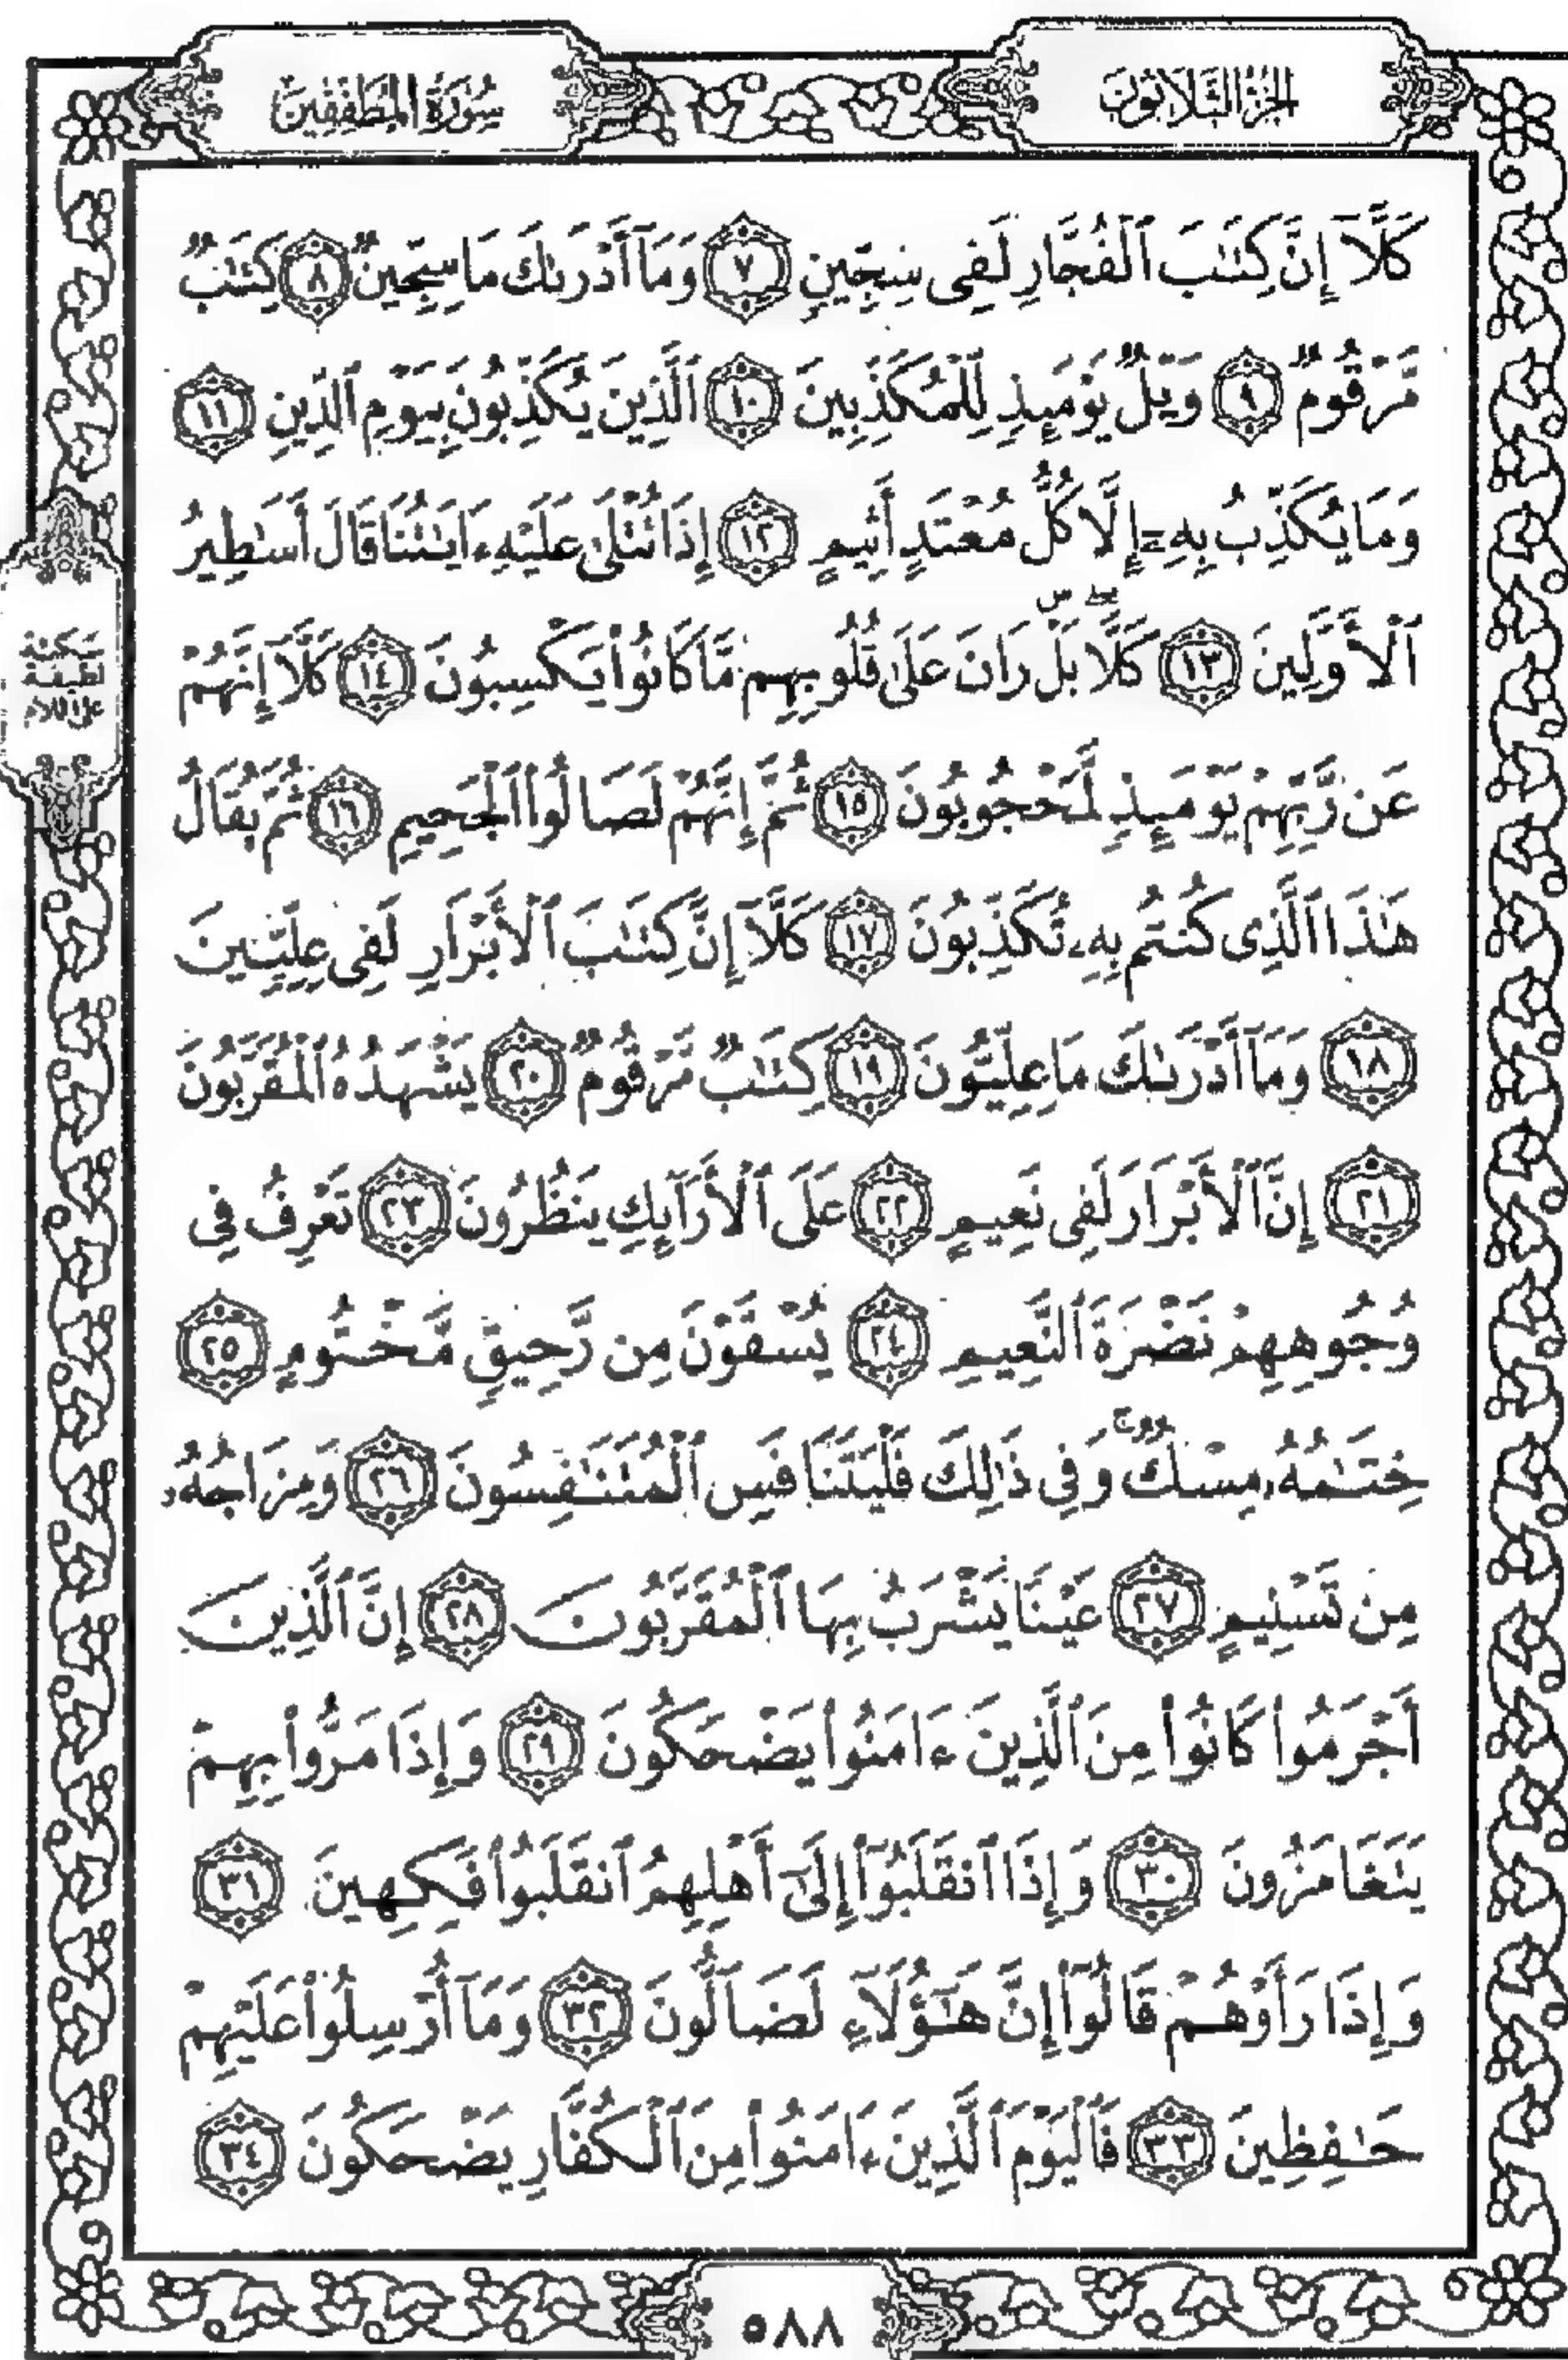 سُورَةُ المُطَفِّفِينَ
الجُزْءُ الثَّلَاثُونَ
كَلَّآ إِنَّ كِتَٰبَ ٱلْفُجَّارِ لَفِى سِجِّينٍ ٧ وَمَآ أَدْرَىٰكَ مَا سِجِّينٌ ٨ كِتَٰبٌ
مَّرْقُومٌ ٩ وَيْلٌ يَوْمَئِذٍ لِّلْمُكَذِّبِينَ ١٠ ٱلَّذِينَ يُكَذِّبُونَ بِيَوْمِ ٱلدِّينِ ١١
وَمَا يُكَذِّبُ بِهِۦٓ إِلَّا كُلُّ مُعْتَدٍ أَثِيمٍ ١٢ إِذَا تُتْلَىٰ عَلَيْهِ ءَايَٰتُنَا قَالَ أَسَٰطِيرُ
ٱلْأَوَّلِينَ ١٣ كَلَّاۖ بَلْۜ رَانَ عَلَىٰ قُلُوبِهِم مَّا كَانُوا۟ يَكْسِبُونَ ١٤ كَلَّآ إِنَّهُمْ
عَن رَّبِّهِمْ يَوْمَئِذٍ لَّمَحْجُوبُونَ ١٥ ثُمَّ إِنَّهُمْ لَصَالُوا۟ ٱلْجَحِيمِ ١٦ ثُمَّ يُقَالُ
هَٰذَا ٱلَّذِى كُنتُم بِهِۦ تُكَذِّبُونَ ١٧ كَلَّآ إِنَّ كِتَٰبَ ٱلْأَبْرَارِ لَفِى عِلِّيِّينَ
١٨ وَمَآ أَدْرَىٰكَ مَا عِلِّيُّونَ ١٩ كِتَٰبٌ مَّرْقُومٌ ٢٠ يَشْهَدُهُ ٱلْمُقَرَّبُونَ
٢١ إِنَّ ٱلْأَبْرَارَ لَفِى نَعِيمٍ ٢٢ عَلَى ٱلْأَرَآئِكِ يَنظُرُونَ ٢٣ تَعْرِفُ فِى
وُجُوهِهِمْ نَضْرَةَ ٱلنَّعِيمِ ٢٤ يُسْقَوْنَ مِن رَّحِيقٍ مَّخْتُومٍ ٢٥
خِتَٰمُهُۥ مِسْكٌۚ وَفِى ذَٰلِكَ فَلْيَتَنَافَسِ ٱلْمُتَنَٰفِسُونَ ٢٦ وَمِزَاجُهُۥ
مِن تَسْنِيمٍ ٢٧ عَيْنًا يَشْرَبُ بِهَا ٱلْمُقَرَّبُونَ ٢٨ إِنَّ ٱلَّذِينَ
أَجْرَمُوا۟ كَانُوا۟ مِنَ ٱلَّذِينَ ءَامَنُوا۟ يَضْحَكُونَ ٢٩ وَإِذَا مَرُّوا۟ بِهِمْ
يَتَغَامَزُونَ ٣٠ وَإِذَا ٱنقَلَبُوٓا۟ إِلَىٰٓ أَهْلِهِمُ ٱنقَلَبُوا۟ فَكِهِينَ ٣١
وَإِذَا رَأَوْهُمْ قَالُوٓا۟ إِنَّ هَٰٓؤُلَآءِ لَضَآلُّونَ ٣٢ وَمَآ أُرْسِلُوا۟ عَلَيْهِمْ
حَٰفِظِينَ ٣٣ فَٱلْيَوْمَ ٱلَّذِينَ ءَامَنُوا۟ مِنَ ٱلْكُفَّارِ يَضْحَكُونَ ٣٤
سكتة
لطيفة
على اللام
٥٨٨